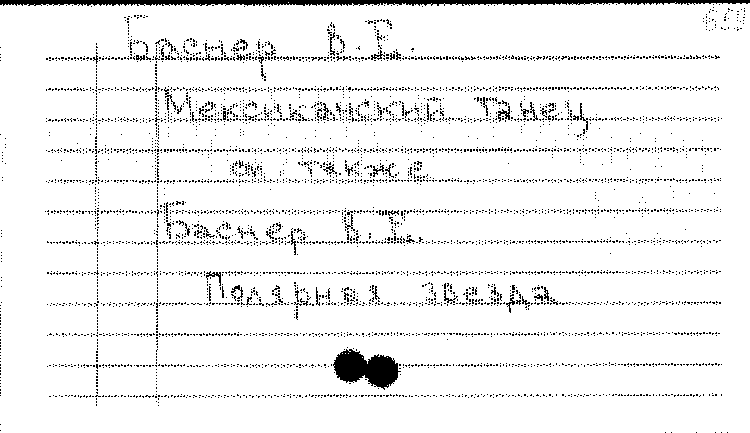 659
Баснер В.Е.
Мексиканский танец
см. также
Баснер В.Е.
Полярная звезда